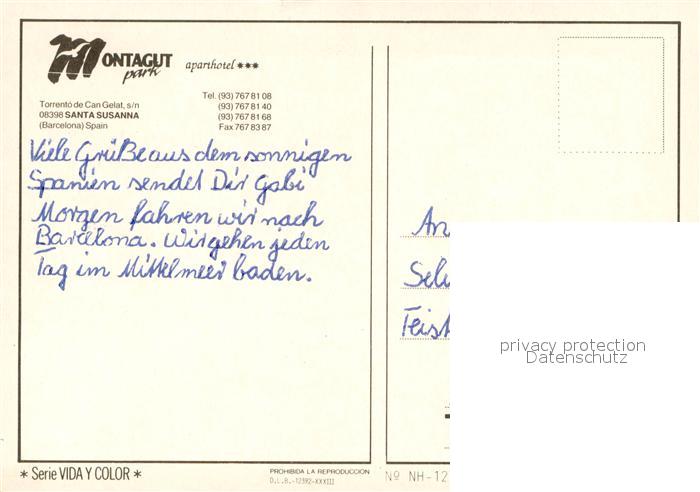 MONTAGUT
park aparthotel ***
Torrentó de Can Gelat, s/n
08398 SANTA SUSANNA
(Barcelona) Spain
Tel. (93) 767 81 08
(93) 767 81 40
(93) 767 81 68
Fax 767 83 87
Viele Grüße aus dem sonnigen
Spanien sendet Dir Gabi
Morgen fahren wir nach
Barcelona. Wir gehen jeden
Tag im Mittelmeer baden.
An
privacy protection
Datenschutz
* Serie VIDA Y COLOR *
PROHIBIDA LA REPRODUCCION
D.L.B.-12392-XXXIII
Nº NH-12